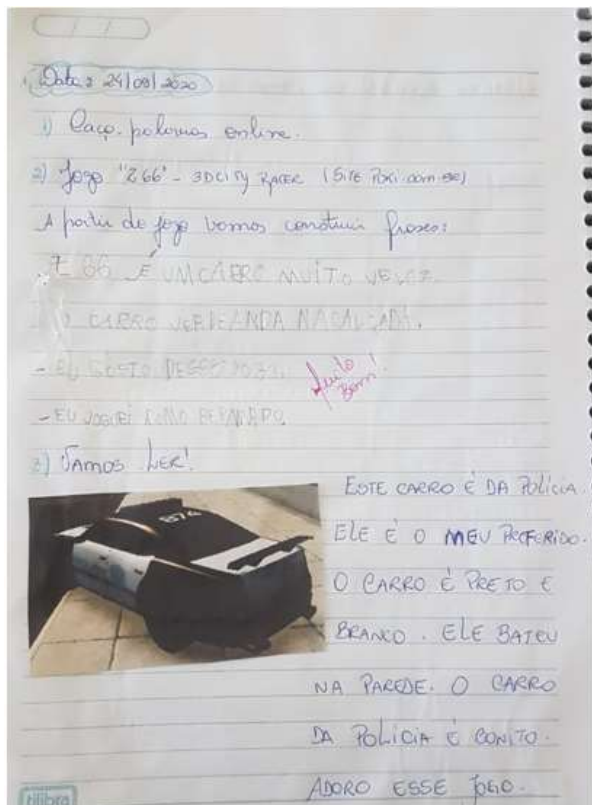 Data: 24/09/2020
1) Caça-palavras online.
2) Jogo "Z66" - 3D CITY RACER (SITE POKI.COM.BR)
A partir do jogo vamos construir frases:
Z 66 É UM CARRO MUITO VELOZ.
O CARRO VERDE ANDA NA CALÇADA.
- EU GOSTO DESSE JOGO.
Muito
Bom!
- EU JOGUEI COM O BERNARDO.
3) VAMOS LER!
ESTE CARRO É DA POLÍCIA.
874
ELE É O MEU PREFERIDO.
O CARRO É PRETO E
BRANCO. ELE BATEU
NA PAREDE. O CARRO
DA POLÍCIA É BONITO.
ADORO ESSE JOGO.
tilibra